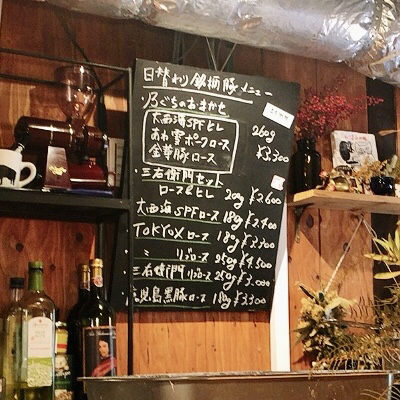 日替わり銘柄豚メニュー
乃ぐちのおまかせ
大西海SPFヒレ
あわ雪ポークロース
金華豚ロース
260g
¥3,300
・三右衛門セット
ロース&ヒレ 200g ¥2,600
大西海SPFロース 180g ¥2,400
TOKYOXロース 180g ¥3,300
〃 リブロース 250g ¥4,500
三右衛門リブロース 250g ¥3,000
鹿児島黒豚ロース 180g ¥3,300